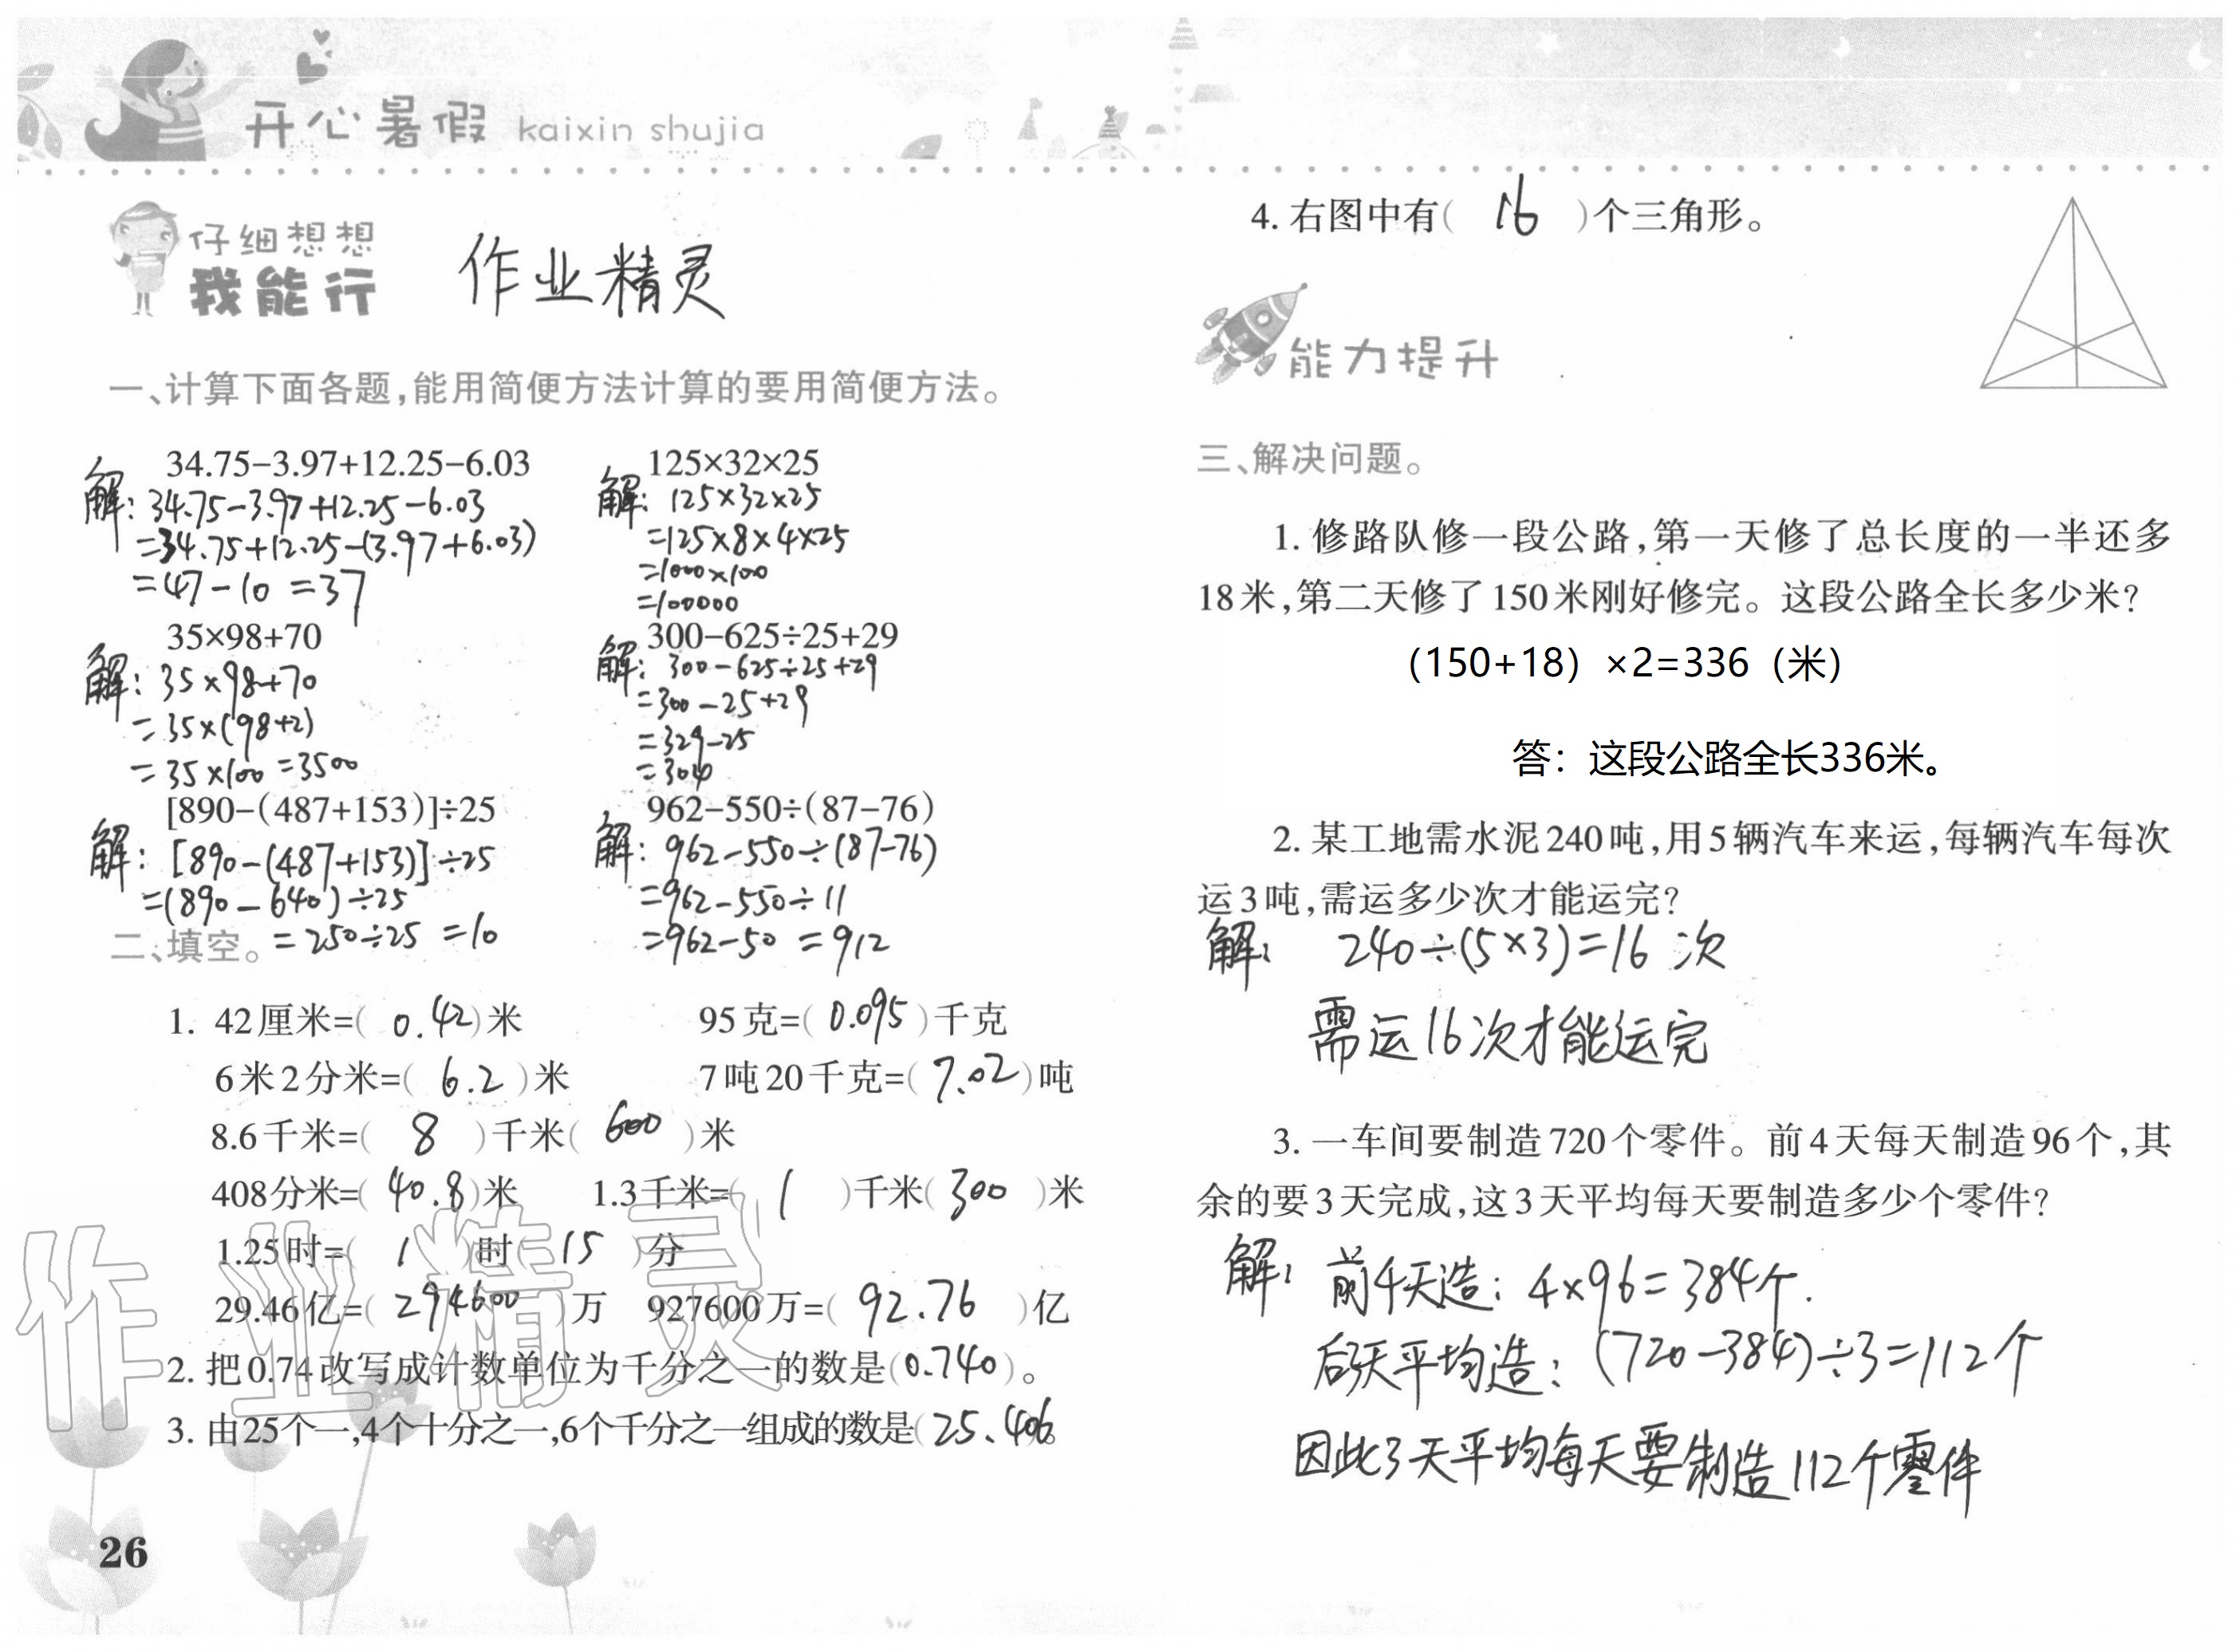 开心暑假 kaixin shujia
仔细想想
我能行
作业精灵
一、计算下面各题,能用简便方法计算的要用简便方法。
34.75-3.97+12.25-6.03
解: 34.75-3.97+12.25-6.03
=34.75+12.25-(3.97+6.03)
=47-10 =37
125×32×25
解: 125×32×25
=125×8×4×25
=1000×100
=100000
35×98+70
解: 35×98+70
=35×(98+2)
=35×100 =3500
300-625÷25+29
解: 300-625÷25+29
=300-25+29
=329-25
=304
[890-(487+153)]÷25
解: [890-(487+153)]÷25
=(890-640)÷25
=250÷25 =10
962-550÷(87-76)
解: 962-550÷(87-76)
=962-550÷11
=962-50 =912
二、填空。
1. 42厘米=( 0.42 )米 95克=( 0.095 )千克
6米2分米=( 6.2 )米 7吨20千克=( 7.02 )吨
8.6千米=( 8 )千米( 600 )米
408分米=( 40.8 )米 1.3千米=( 1 )千米( 300 )米
1.25时=( 1 )时( 15 )分
29.46亿=( 294600 )万 927600万=( 92.76 )亿
2. 把0.74改写成计数单位为千分之一的数是(0.740)。
3. 由25个一,4个十分之一,6个千分之一组成的数是(25.406)。
作业精灵
26
4. 右图中有( 16 )个三角形。
能力提升
三、解决问题。
1. 修路队修一段公路,第一天修了总长度的一半还多
18米,第二天修了150米刚好修完。这段公路全长多少米?
（150+18）×2=336（米）
答：这段公路全长336米。
2. 某工地需水泥240吨,用5辆汽车来运,每辆汽车每次
运3吨,需运多少次才能运完?
解: 240÷(5×3)=16 次
需运16次才能运完
3. 一车间要制造720个零件。前4天每天制造96个,其
余的要3天完成,这3天平均每天要制造多少个零件?
解: 前4天造: 4×96=384个.
后3天平均造: (720-384)÷3=112个
因此3天平均每天要制造112个零件